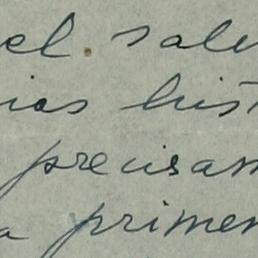 el salu
ias hist
precisam
a primer